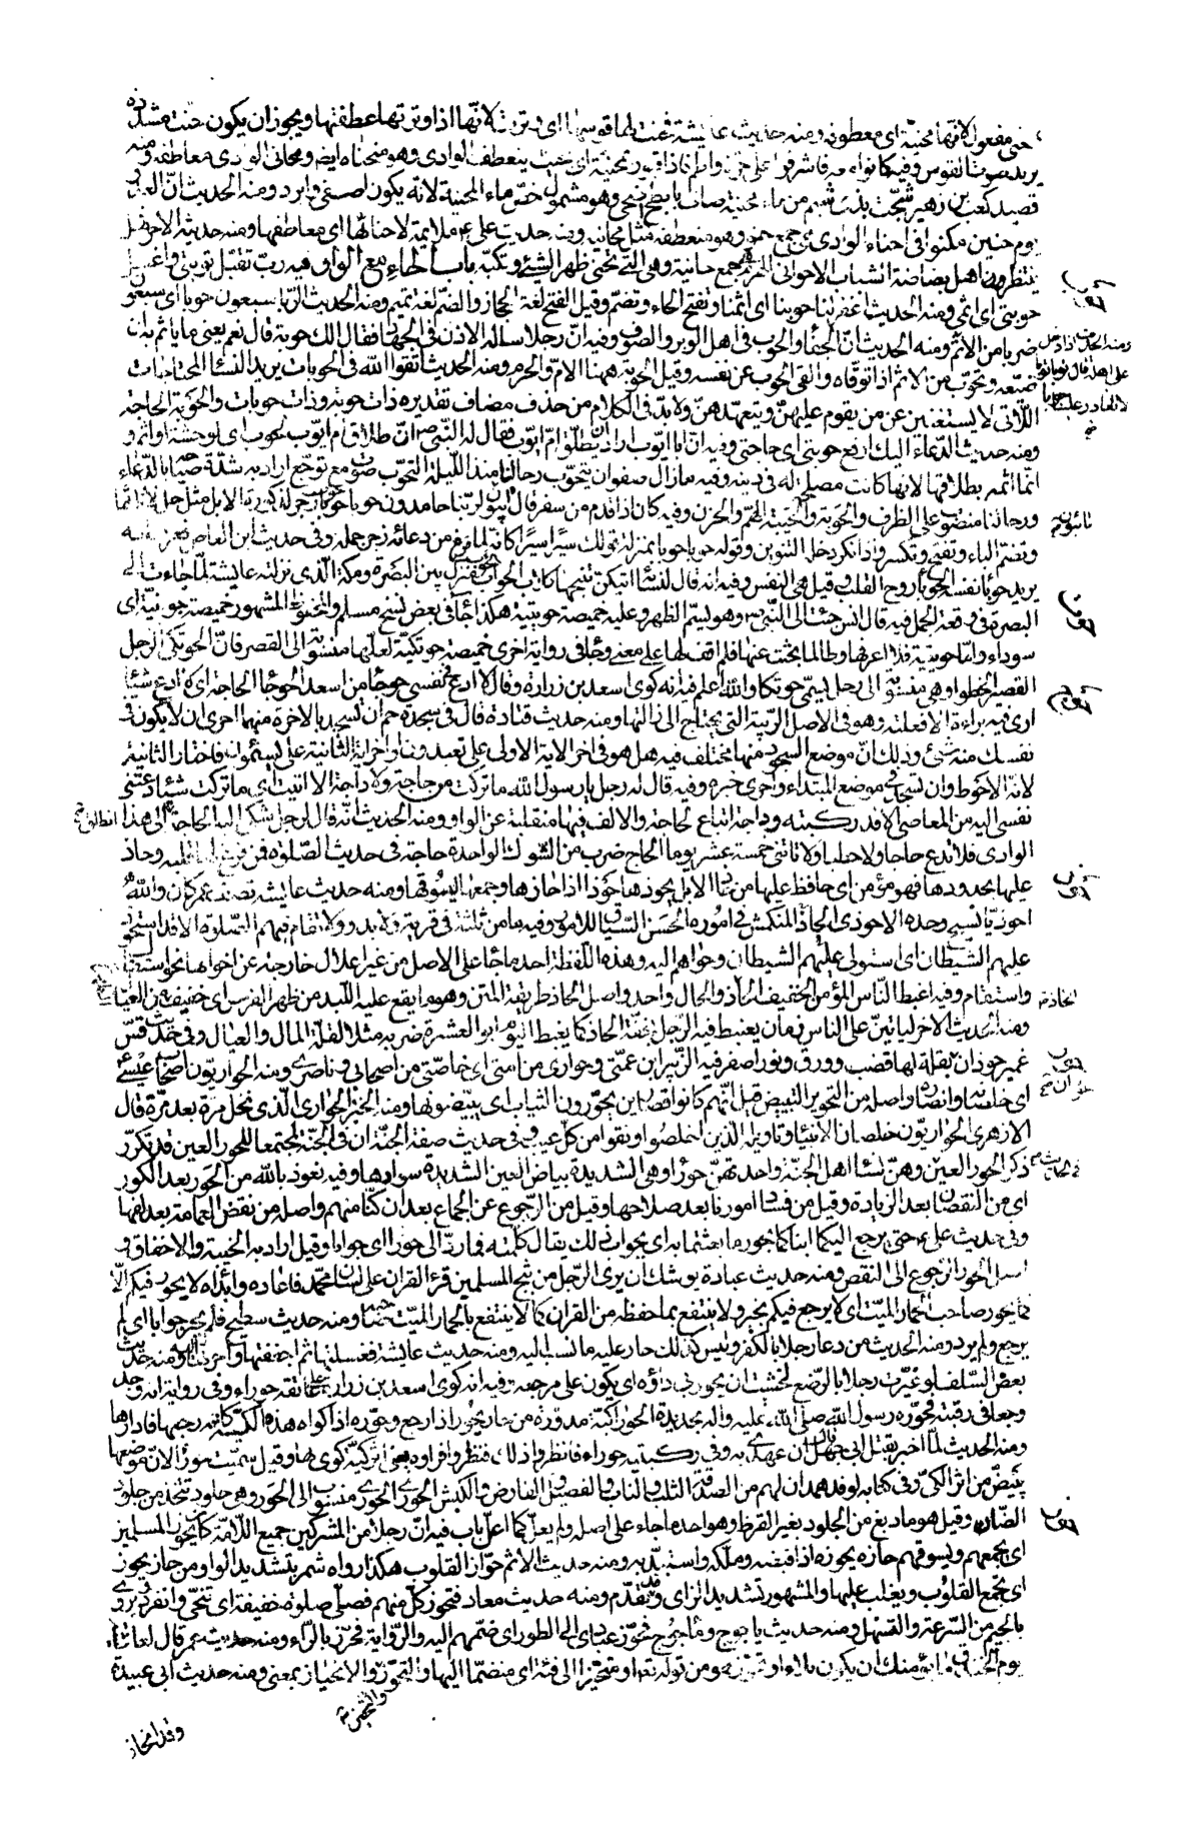 حنى مفعول لانها محنية اى معطوفة ومنه حديث عايشة فحنت لها قوسها اى وترت لانها اذا وترتها عطفتها ويجوز ان يكون حنت مشددة
يريد صوت القوس وفيه كانوا معه فاشرفوا على حرة واقم فاذا قبور بمحنية اى بحيث ينعطف الوادى وهو منحناه ايضا ومحانى الوادى معاطفه ومنه
قصيد كعب بن زهير شجت بذى شبم من ماء محنية صاف بابطح اضحى وهو مشمول خص ماء المحنية لانه يكون اصفى وابرد ومنه الحديث ان العدو
يوم حنين مكنوا فى احناء الوادى هى جمع حنو وهو منعطفه مثل محانيه ومنه حديث على ملايمة لاحنائها اى معاطفها ومنه حديثه الاخر فهل
ينتظر اهل بضاضة الشباب الا حوانى الهرم جمع حانية وهى التى تحنى ظهر الشيخ وتكبه باب الحاء مع الواو فيه رب تقبل توبتى واغسل
حوبتى اى اثمى ومنه الحديث اغفر لنا حوبنا اى اثمنا وتفتح الحاء وتضم وقيل الفتح لغة الحجاز والضم لغة تميم ومنه الحديث الربا سبعون حوبا اى سبعون
ضربا من الاثم ومنه الحديث ان الجفاء والحوب فى اهل الوبر والصوف وفيه ان رجلا ساله الاذن فى الجهاد فقال الك حوبة قال نعم يعنى ما ياثم به ان
ضيعه وتحوب من الاثم اذا توقاه والقى الحوب عن نفسه وقيل الحوبة ههنا الام والحرم ومنه الحديث اتقوا الله فى الحوبات يريد النساء المحتاجات
اللاتى لا يستغنين عن من يقوم عليهن ويتعهدهن ولا بد فى الكلام من حذف مضاف تقديره ذات حوبة وذات حوبات والحوبة الحاجة
ومنه حديث الدعاء اليك ارفع حوبتى اى حاجتى وفيه ان ابا ايوب اراد ان يطلق ام ايوب فقال له النبى ص ان طلاق ام ايوب لحوب اى لوحشة او اثم و
انما اثمه بطلاقها لانها كانت مصلحة له فى دينه وفيه ما زال صفوان يتحوب رحالنا منذ الليلة التحوب صوت مع توجع اراد به شدة صياحه بالدعاء
ورحالنا منصوب على الظرف والحوبة والحيبة الهم والحزن وفيه كان اذا قدم من سفر قال ايبون لربنا حامدون حوبا حوبا حوب زجر لذكورة الابل مثل حل لاناثها
وتضم الباء وتفتح وتكسر واذا نكر دخله التنوين وقوله حوبا حوبا بمنزلة قولك سيرا سيرا كانه لما فرغ من دعائه زجر جمله وفى حديث ابن العاص فعرف انه
يريد حوباء نفسه الحوباء روح القلب وقيل هى النفس وفيه انه قال لنسائه ايتكن تنبحها كلاب الحوأب الحوأب منزل بين البصرة ومكة الذى نزلته عايشة لما جاءت الى
البصرة فى وقعة الجمل فيه قال انس جئت الى النبى ص وهو يسم الظهر وعليه خميصة حويتية هكذا جاء فى بعض نسخ مسلم والمحفوظ المشهور خميصة جونية اى
سوداء واما حويتية فلا اعرفها وطالما بحثت عنها فلم اقف لها على معنى وجاء فى رواية اخرى خميصة حوتكية لعلها منسوبة الى القصر فان الحوتكى الرجل
القصير الخطو او هى منسوبة الى رجل يسمى حوتكا والله اعلم فيه انه كوى اسعد بن زرارة وقال لا ادع فى نفسى حوجاء من اسعد الحوجاء الحاجة اى لا ادع شيئا
ارى فيه براءه الا فعلته وهو فى الاصل الريبة التى يحتاج الى ازالتها ومنه حديث قتادة قال فى سجدة حم ان تسجد بالاخرة منهما احرى ان لا يكون فى
نفسك منه شئ وذلك ان موضع السجود منها مختلف فيه هل هو فى اخر الاية الاولى على تعبدون او اخر الثانية على يسئمون فاختار الثانية
لانه الاحوط وان تسجد فى موضع المبتداء واحرى خبره وفيه قال له رجل يا رسول الله ما تركت من حاجة ولا داجة الا اتيت اى ما تركت شيئا دعتنى
نفسى اليه من المعاصى الا قد ركبته وداجة اتباع لحاجة والالف فيها منقلبة عن الواو ومنه الحديث انه قال لرجل شكى اليه الحاجة انطلق الى هذا
الوادى فلا تدع حاجا ولا حطبا ولا تاتنى خمسة عشر يوما الحاج ضرب من الشوك الواحدة حاجة فى حديث الصلوة فمن فرغ لها قلبه وحاذ
عليها بحدودها فهو مؤمن اى حافظ عليها من حاذ الابل يحوذها حوذا اذا حازها وجمعها ليسوقها ومنه حديث عايشة تصف عمر كان والله
احوذيا نسيج وحده الاحوذى الجاد المنكمش فى اموره الحسن السياق للامور وفيه ما من ثلثة فى قرية ولا بدو ولا تقام فيهم الصلوة الا قد استحوذ
عليهم الشيطان اى استولى عليهم الشيطان وحواهم اليه وهذه اللفظة احد ما جاء على الاصل من غير اعلال خارجة عن اخواتها نحو استقال
واستقام وفيه اغبط الناس المؤمن الخفيف الحاذ الحاذ والحال واحد واصل الحاذ طريقة المتن وهو ما يقع عليه اللبد من ظهر الفرس اى خفيف من العيال
ومنه الحديث الاخر لياتين على الناس زمان يغبط فيه الرجل بخفة الحاذ كما يغبط اليوم ابو العشرة ضربه مثلا لقلة المال والعيال وفى حديث قس
عمير حوذان بقلة لها قضب وورق ونور اصفر فيه الزبير ابن عمتى وحوارى من امتى اى خاصتى من اصحابى وناصرى ومنه الحواريون اصحاب عيسى
اى خلصانه وانصاره واصله من التحوير التبييض قيل انهم كانوا قصارين يحورون الثياب اى يبيضونها ومنه الخبز الحوارى الذى نخل مرة بعد مرة قال
الازهرى الحواريون خلصان الانبياء وتاويله الذين اخلصوا ونقوا من كل عيب وفى حديث صفة الجنة ان فى الجنة لمجتمعا للحور العين قد تكرر
ذكر الحور العين وهن نساء اهل الجنة واحدتهن حوراء وهى الشديدة بياض العين الشديدة سوادها وفيه نعوذ بالله من الحور بعد الكور
اى من النقصان بعد الزيادة وقيل من فساد امورنا بعد صلاحها وقيل من الرجوع عن الجماعة بعد ان كنا منهم واصله من نقض العمامة بعد لفها
وفى حديث على ع حتى يرجع اليكما ابناكما بحور ما بعثتما به اى بجواب ذلك يقال كلمته فما رد الى حورا اى جوابا وقيل اراد به الخيبة والاخفاق و
اصل الحور الرجوع الى النقص ومنه حديث عبادة يوشك ان يرى الرجل من ثبج المسلمين قرء القران على لسان محمد فاعاده وابداه لا يحور فيكم الا
كما يحور صاحب الحمار الميت اى لا يرجع فيكم بخير ولا ينتفع بما حفظه من القران كما لا ينتفع بالحمار الميت صاحبه ومنه حديث سطيح فلم يحر جوابا اى لم
يرجع ولم يرد ومنه الحديث من دعا رجلا بالكفر وليس كذلك حار عليه اى رجع عليه ما نسب اليه ومنه حديث عايشة فغسلتها ثم اجففتها ثم احرتها اليه ومنه حديث
بعض السلف لو عيرت رجلا بالرضع لخشيت ان يحور بى داؤه اى يكون على مرجعه وفيه انه كوى اسعد بن زرارة على عاتقه حوراء وفى رواية انه وجد
وجعا فى رقبته فحوره رسول الله صلى الله عليه واله بحديدة الحوراء كية مدورة من حار يحور اذا رجع وحوره اذا كواه هذه الكية كانه رجعها فادارها
ومنه الحديث لما اخبر بقتل ابى جهل قال ان عهدى به وفى ركبتيه حوراء فانظروا ذلك فنظروا فراوه يعنى اثر كية كوى بها وقيل سميت حوراء لان موضعها
يبيض من اثر الكى وفى كتابه لوفد همدان لهم من الصدقة الثلب والناب والفصيل والفارض والكبش الحورى الحورى منسوب الى الحور وهى جلود تتخذ من جلود
الضان وقيل هو ما دبغ من الجلود بغير القرظ وهو احد ما جاء على اصله ولم يعل كما اعل باب فيه ان رجلا من المشركين جميع اللامة كان يحوز المسلمين
اى يجمعهم ويسوقهم حازه يحوزه اذا قبضه وملكه واستبد به ومنه حديث الاثم حواز القلوب هكذا رواه شمر بتشديد الواو من حاز يحوز
اى يجمع القلوب ويغلب عليها والمشهور تشديد الزاى وقد تقدم ومنه حديث معاذ فتحوز كل منهم فصلى صلوة خفيفة اى تنحى وانفرد ويروى
بالجيم من السرعة والتسهل ومنه حديث ياجوج وماجوج فحوز عبادى الى الطور اى ضمهم اليه والرواية فحرز بالراء ومنه حديث عمر قال لعايشة
يوم الخندق وما يؤمنك ان يكون بلاء او تحوز هو من قوله تعالى او متحيزا الى فئة اى منضما اليها والتحوز والانحياز بمعنى ومنه حديث ابى عبيدة
وقد انحاز
والتحيز
حوب
ومنه الحديث اذا دخل
على اهله قال توبا توبا
لا يغادر علينا حوبا
تائبون
حوت
حوج
انطلق
حوذ
الحاذ
حور